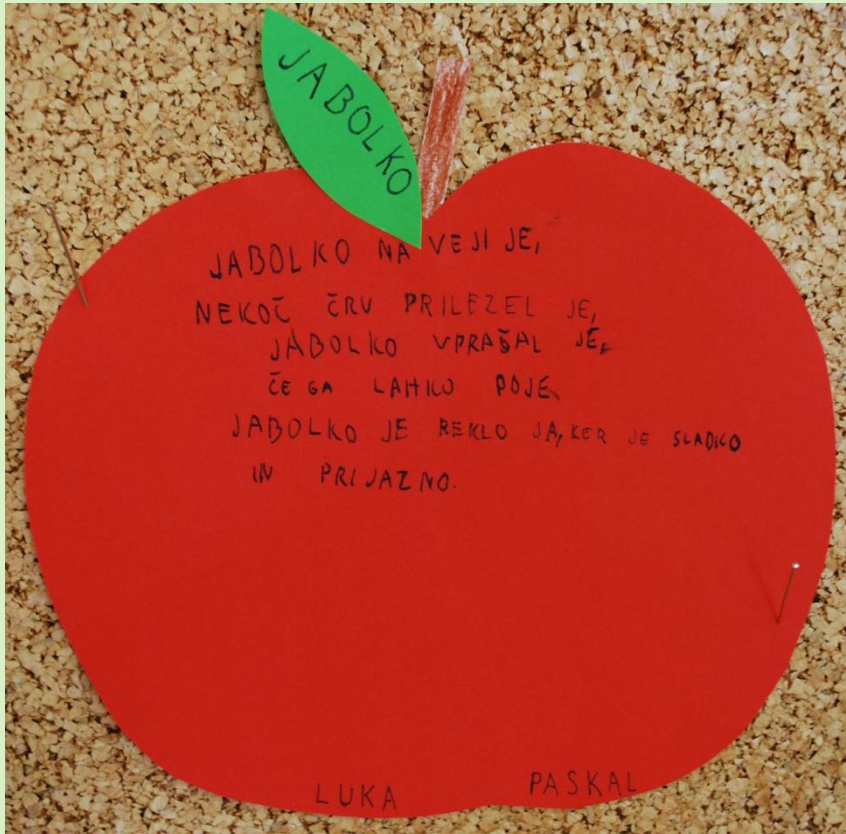 JABOLKO
JABOLKO NA VEJI JE,
NEKOČ ČRV PRILEZEL JE,
JABOLKO VPRAŠAL JE,
ČE GA LAHKO POJE
JABOLKO JE REKLO JA, KER JE SLADKO
IN PRIJAZNO.
LUKA PASKAL